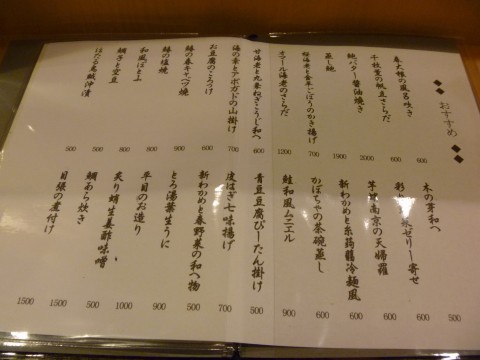 おすすめ
春大根の風呂吹き 600
千枚貝の帆立さらだ 600
鮑バター醤油焼き 2000
蒸し鮑 1900
桜海老と金平ごぼうのかき揚げ 700
オマール海老のさらだ 1200
甘海老と九条ねぎこうじ和へ 600
海の幸とアボガドの山掛け 700
お豆腐のころっけ 600
鰆の春キャベツ焼 800
鰆の塩焼 800
和風ぽとふ
鯛さと空豆 500
ほたる烏賊沖漬 500
木の芽和へ 500
ゼリー寄せ 600
南京の天婦羅 600
新わかめと糸蒟蒻冷麺風 600
かぼちゃの茶碗蒸し 600
鮭和風ムニエル 900
青豆豆腐ぴーたん掛け 500
皮はぎ七味揚げ 700
新わかめと春野菜の和へ物 500
とろ湯葉とうに 900
平目のお造り 1000
炙り蛸生姜酢味噌 800
鯛あら炊き 500
目張の煮付け 1500
1500